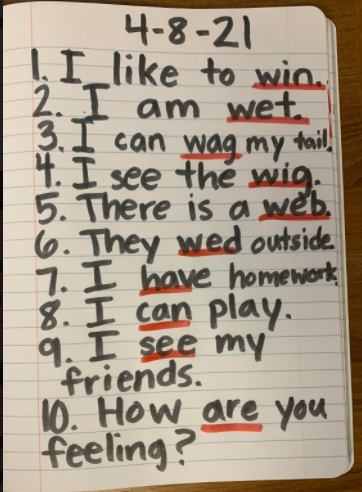 4-8-21
1. I like to win.
2. I am wet.
3. I can wag my tail.
4. I see the wig.
5. There is a web.
6. They wed outside.
7. I have homework.
8. I can play.
9. I see my
friends.
10. How are you
feeling?